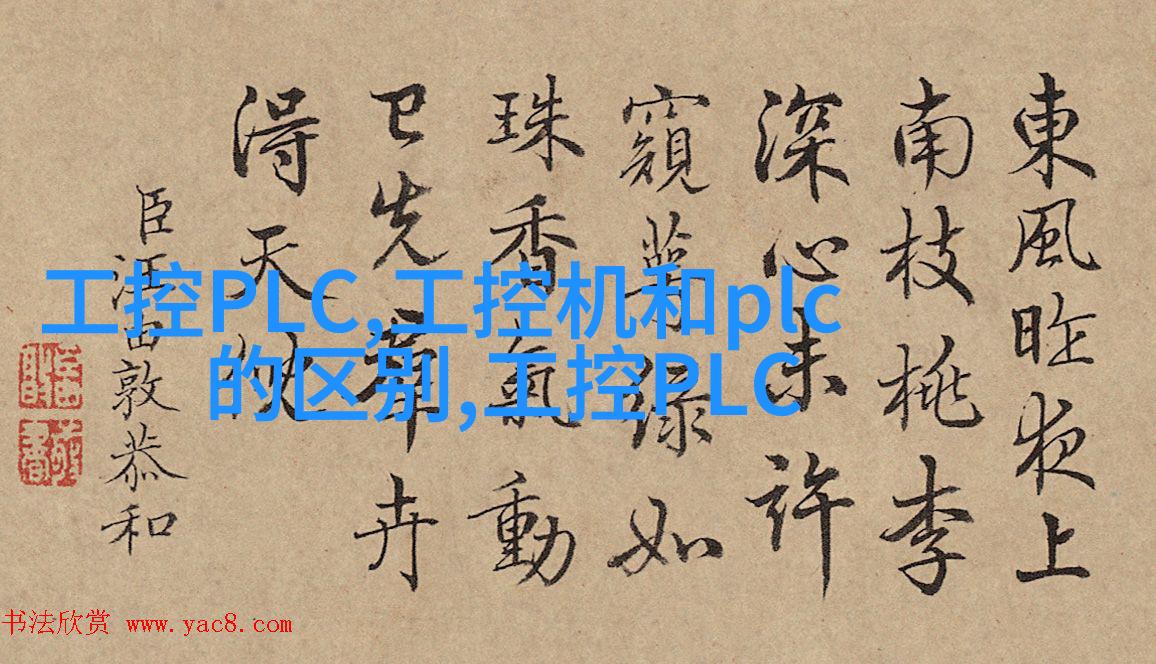 工控PLC,工控机和plc
的区别,工控PLC
東風昨夜上
南枝桃李
深心未許
窺萼緑如
珠香氣動
已先羣卉
得天
臣汪由敦恭和
书法欣赏 www.yac8.com